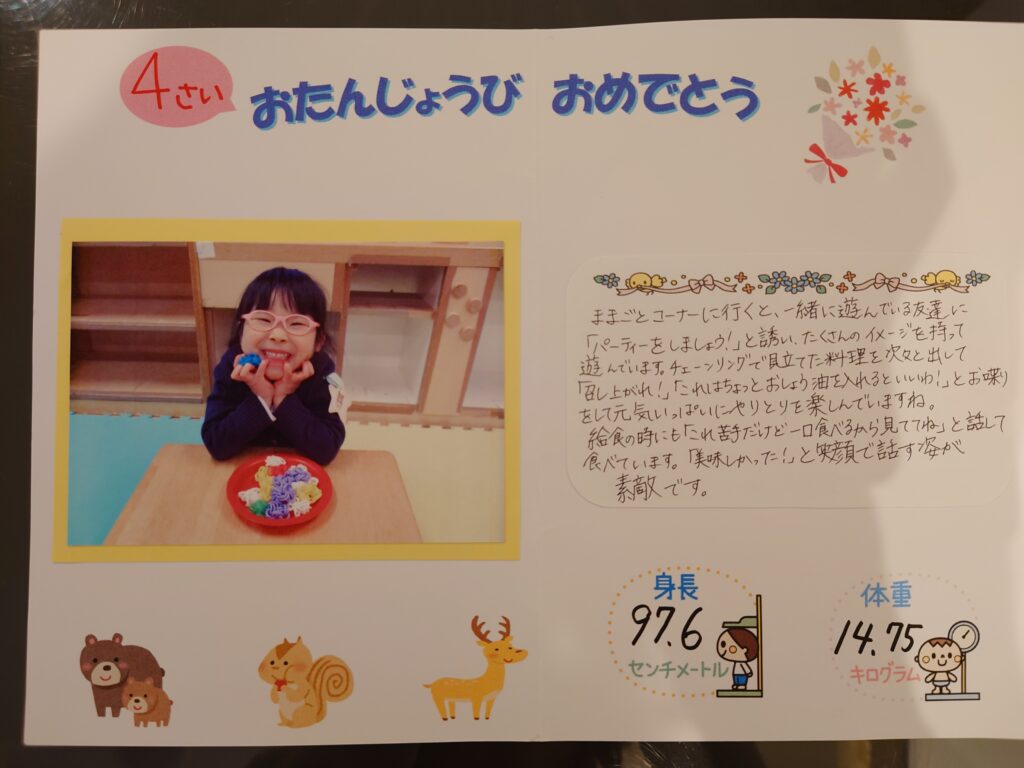 4さい
おたんじょうび おめでとう
ままごとコーナーに行くと、一緒に遊んでいる友達に
「パーティーをしましょう!」と誘い、たくさんのイメージを持って
遊んでいます。チェーンリングで見立てた料理を次々と出して
「召し上がれ!」「これはちょっとおしょう油を入れるといいわ!」とお喋り
をして元気いっぱいにやりとりを楽しんでいますね。
給食の時にも「これ苦手だけど一口食べるから見ててね」と話して
食べています。「美味しかった!」と笑顔で話す姿が
素敵です。
身長
97.6
センチメートル
体重
14.75
キログラム